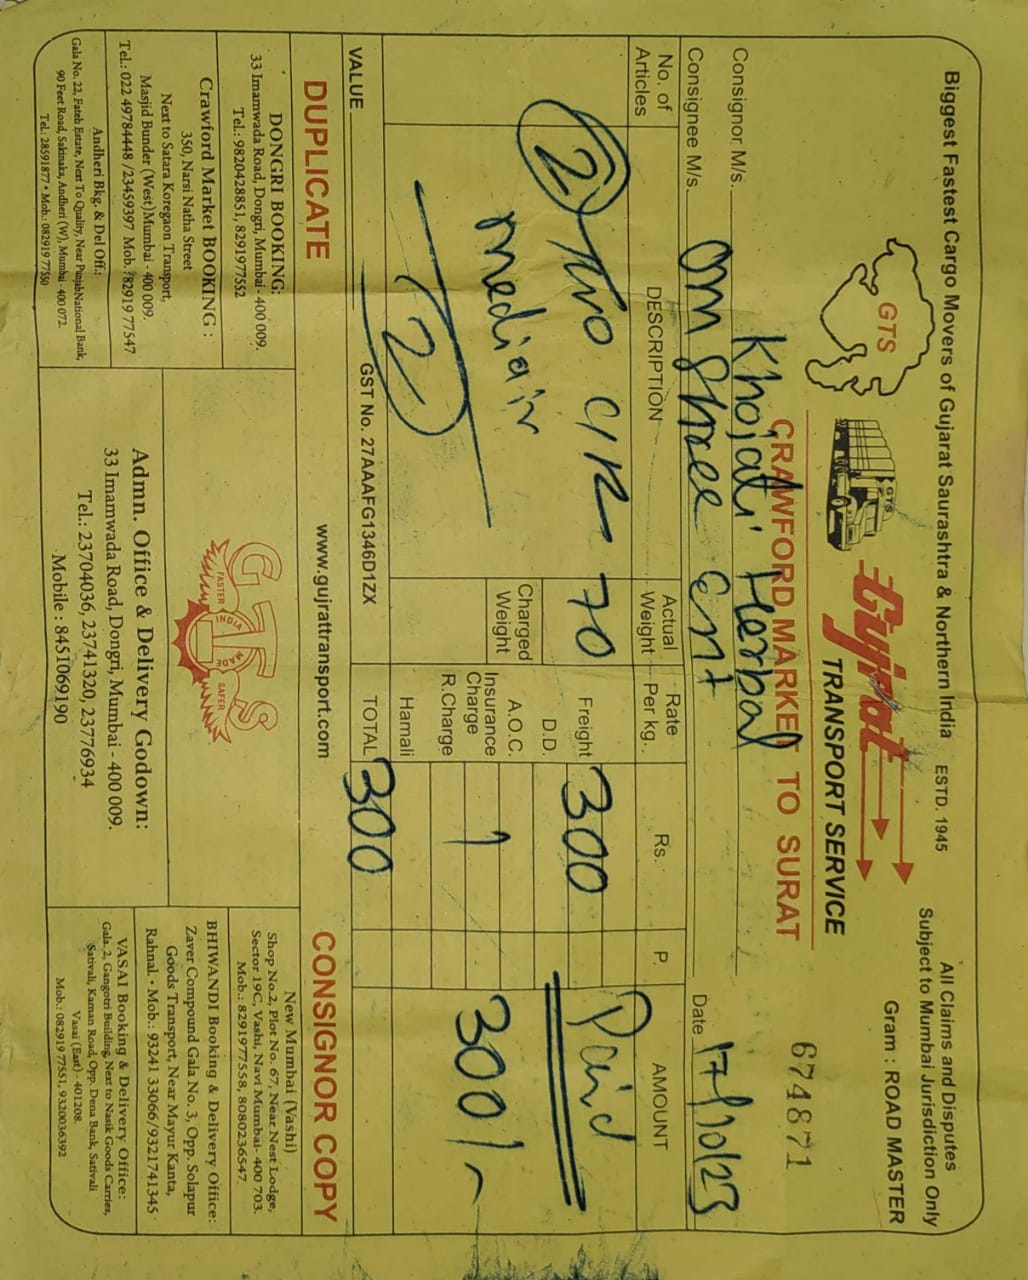 Biggest Fastest Cargo Movers of Gujarat Saurashtra & Northern India ESTD. 1945
All Claims and Disputes
Subject to Mumbai Jurisdiction Only
Gram : ROAD MASTER
GTS
GTS
Gujrat
TRANSPORT SERVICE
674871
CRAWFORD MARKET TO SURAT
Consignor M/s. Khojati Herbal
Date 17/10/23
Consignee M/s. Om Shree Ent
No. of Articles
DESCRIPTION
Actual Weight
Rate Per kg.
Rs.
P.
AMOUNT
2 Two C/R 70
Freight 300
Paid
D.D.
Charged Weight
A.O.C.
Insurance Charge
300/-
R.Charge
Hamali
2
VALUE
GST No. 27AAAFG1346D1ZX
TOTAL 300
DUPLICATE
www.gujrattransport.com
CONSIGNOR COPY
DONGRI BOOKING:
33 Imamwada Road, Dongri, Mumbai- 400 009.
Tel.: 9820428851, 8291977552
Crawford Market BOOKING :
350, Narsi Natha Street
Next to Satara Koregaon Transport,
Masjid Bunder (West)Mumbai - 400 009.
Tel.: 022 49784448 /23459397 Mob.:82919 77547
Andheri Bkg. & Del Off.:
Gala No. 22, Fateh Estate, Next To Quality, Near PunjabNational Bank,
90 Feet Road, Sakinaka, Andheri (W), Mumbai- 400 072.
Tel.: 28591877 • Mob.: 082919 77550
GTS
FASTER
INDIA
MADE
SAFER
Admn. Office & Delivery Godown:
33 Imamwada Road, Dongri, Mumbai - 400 009.
Tel.: 23704036, 23741320, 23776934
Mobile : 8451069190
New Mumbai (Vashi)
Shop No.2, Plot No. 67, Near Nest Lodge,
Sector 19C, Vashi, Navi Mumbai- 400 703.
Mob.: 8291977558, 8080236547
BHIWANDI Booking & Delivery Office:
Zaver Compound Gala No. 3, Opp. Solapur
Goods Transport, Near Mayur Kanta,
Rahnal. • Mob.: 93241 33066/9321741345
VASAI Booking & Delivery Office:
Gala. 2, Gangotri Building, Next to Nasik Goods Carries,
Sativali, Kaman Road, Opp. Dena Bank, Sativali
Vasai (East)- 401208.
Mob.: 082919 77551, 9320036392